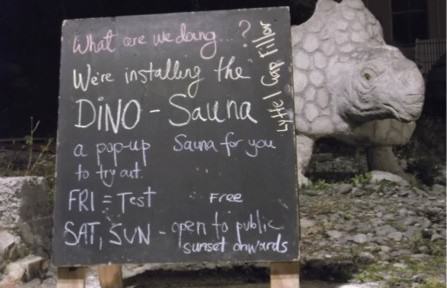 What are we doing...?
We're installing the
DINO-Sauna
a pop-up Sauna for you
to try out.
FRI = Test Free
SAT, SUN - open to public
sunset onwards
Lyttel Gap Filler